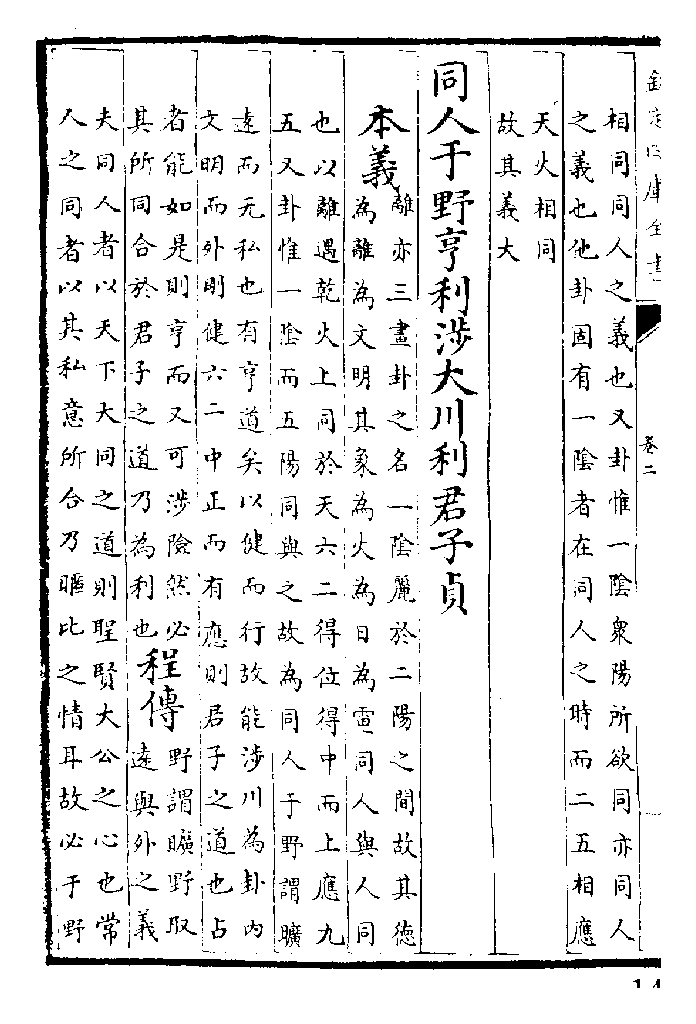 欽定四庫全書
卷二
相同同人之義也又卦惟一陰衆陽所欲同亦同人
之義也他卦固有一陰者在同人之時而二五相應
天火相同
故其義大
同人于野亨利涉大川利君子貞
本義
離亦三畫卦之名一陰麗於二陽之間故其德
為離為文明其象為火為日為電同人與人同
也以離遇乾火上同於天六二得位得中而上應九
五又卦惟一陰而五陽同與之故為同人于野謂曠
遠而无私也有亨道矣以健而行故能涉川為卦內
文明而外剛健六二中正而有應則君子之道也占
者能如是則亨而又可涉險然必
其所同合於君子之道乃為利也
程傳
野謂曠野取
遠與外之義
夫同人者以天下大同之道則聖賢大公之心也常
人之同者以其私意所合乃暱比之情耳故必于野